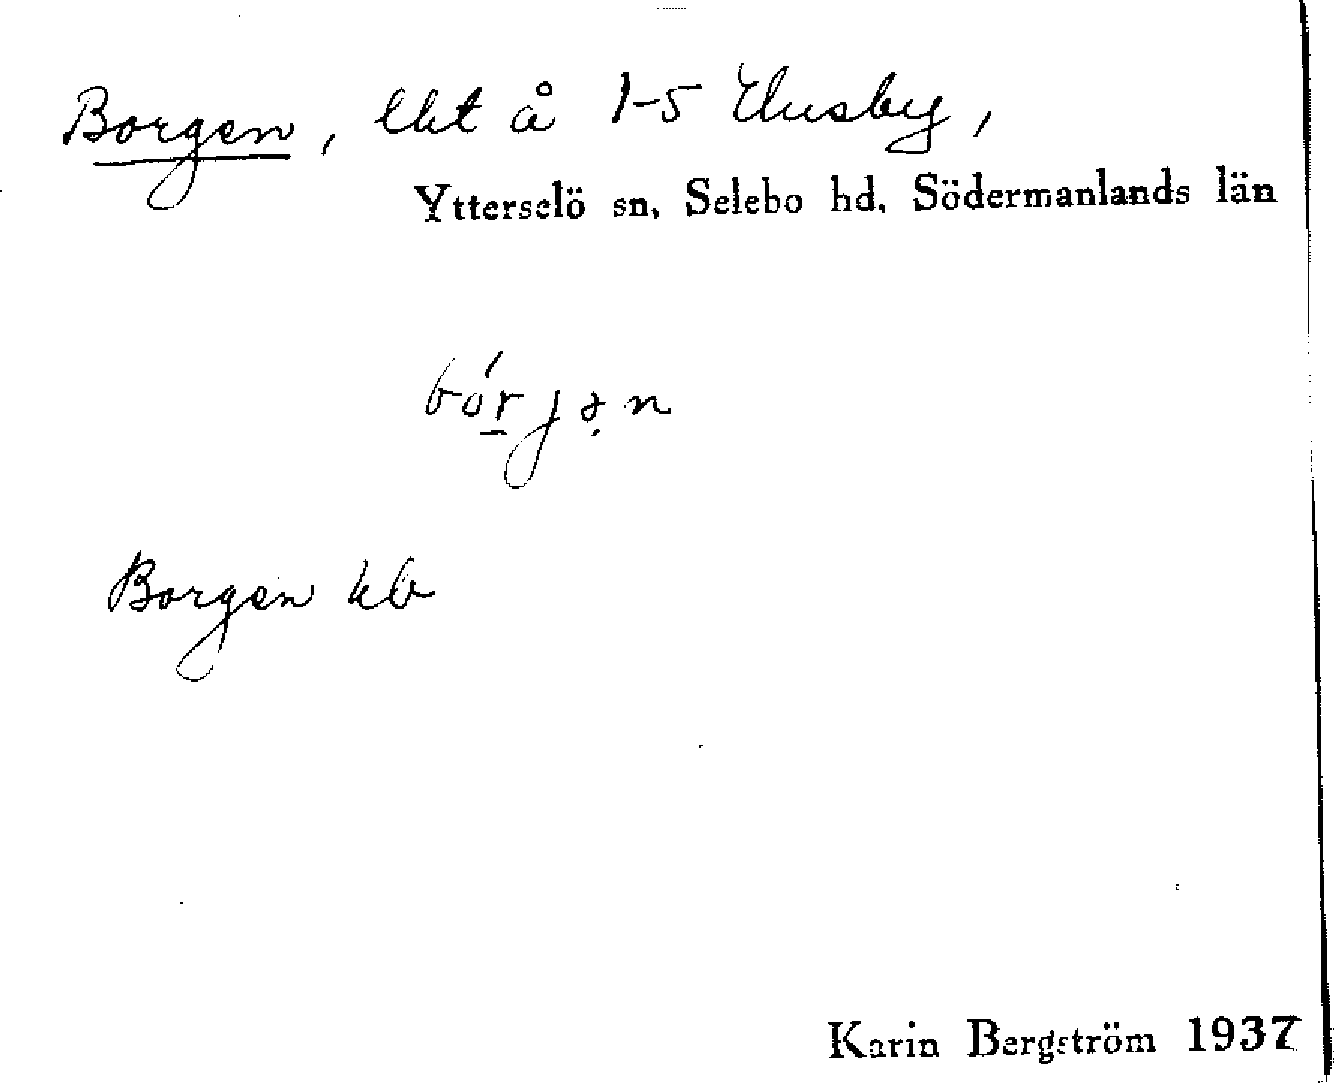 Borgen, lht å 1-5 Husby,
Ytterselö sn, Selebo hd, Södermanlands län
bórjən
Borgen kb
Karin Bergström 1937